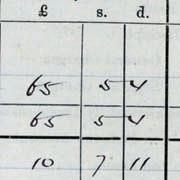 £ s. d.
65 5 4
65 5 4
10 7 11